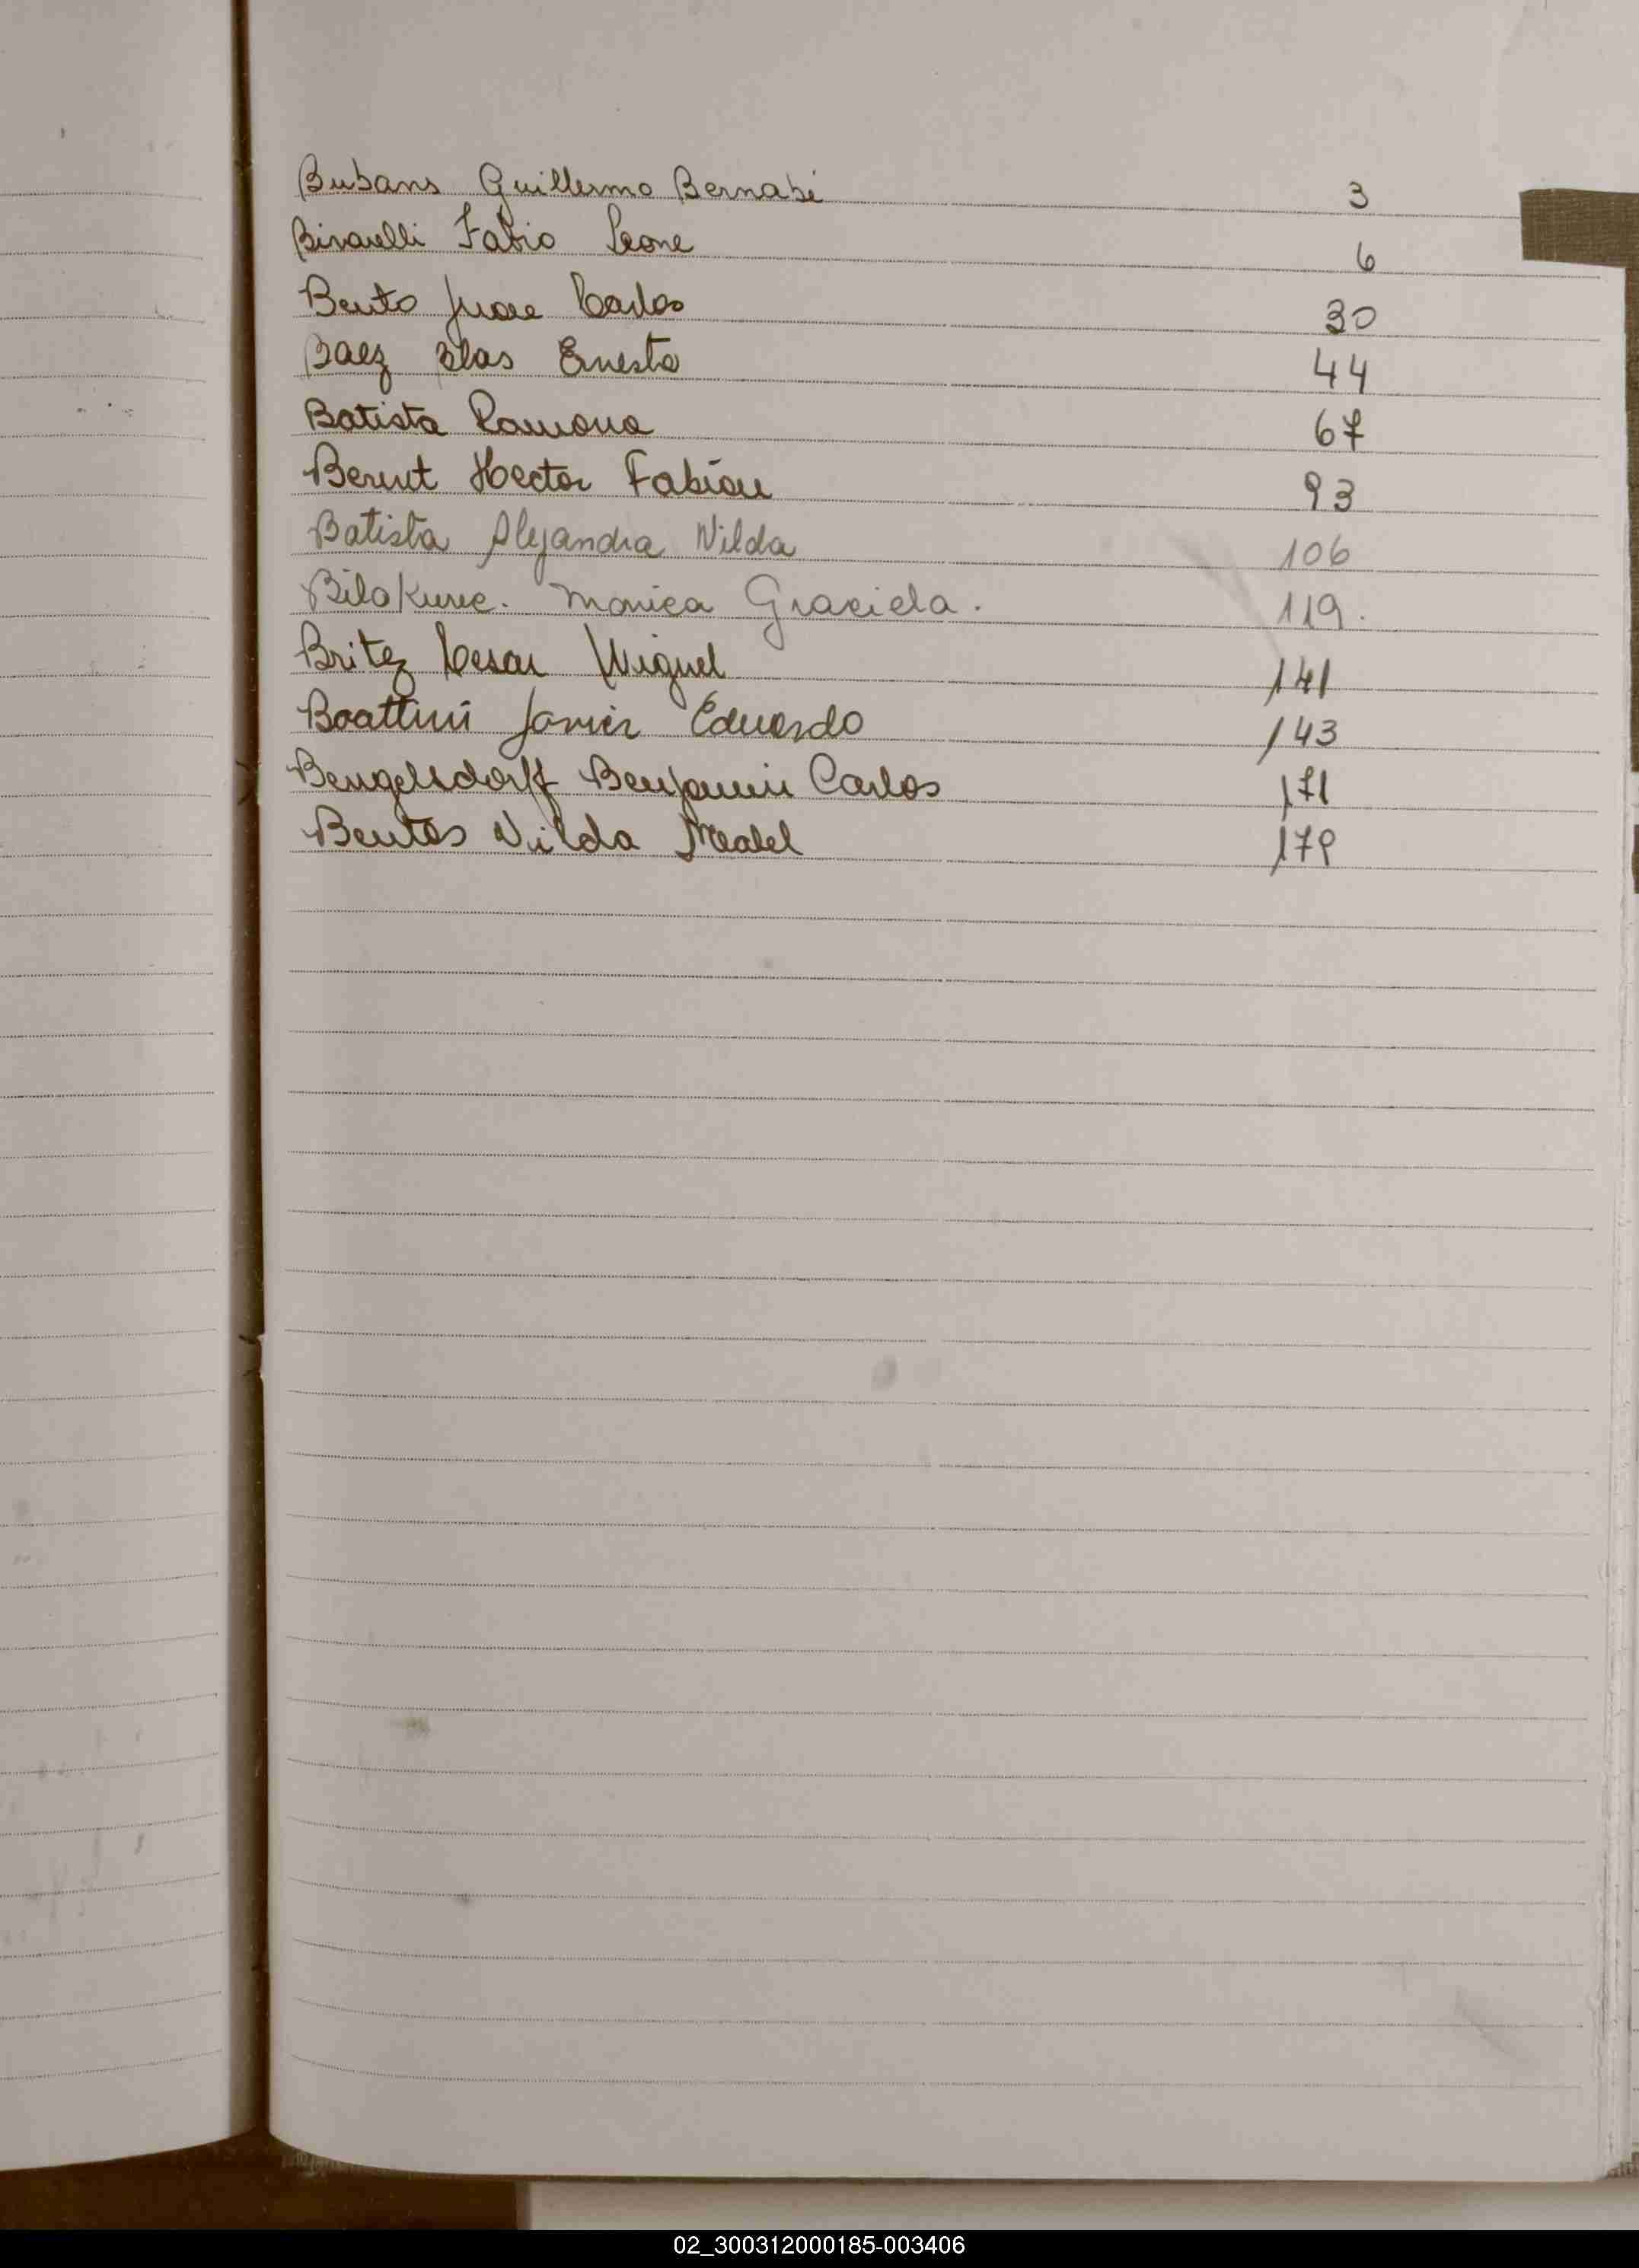 Bubans Guillermo Bernabé 3
Fabio Leone 6
Bento Juan Carlos 30
Baez Blas Ernesto 44
Batista Ramona 67
Berent Hector Fabián 93
Batista Alejandra Nilda 106
Bilokurec. Monica Graciela. 119.
Britez Cesar Miguel 141
Boattini Javier Eduardo 143
Bengelsdorff Benjamin Carlos 171
Bentos Nilda Mabel 179
02_300312000185-003406